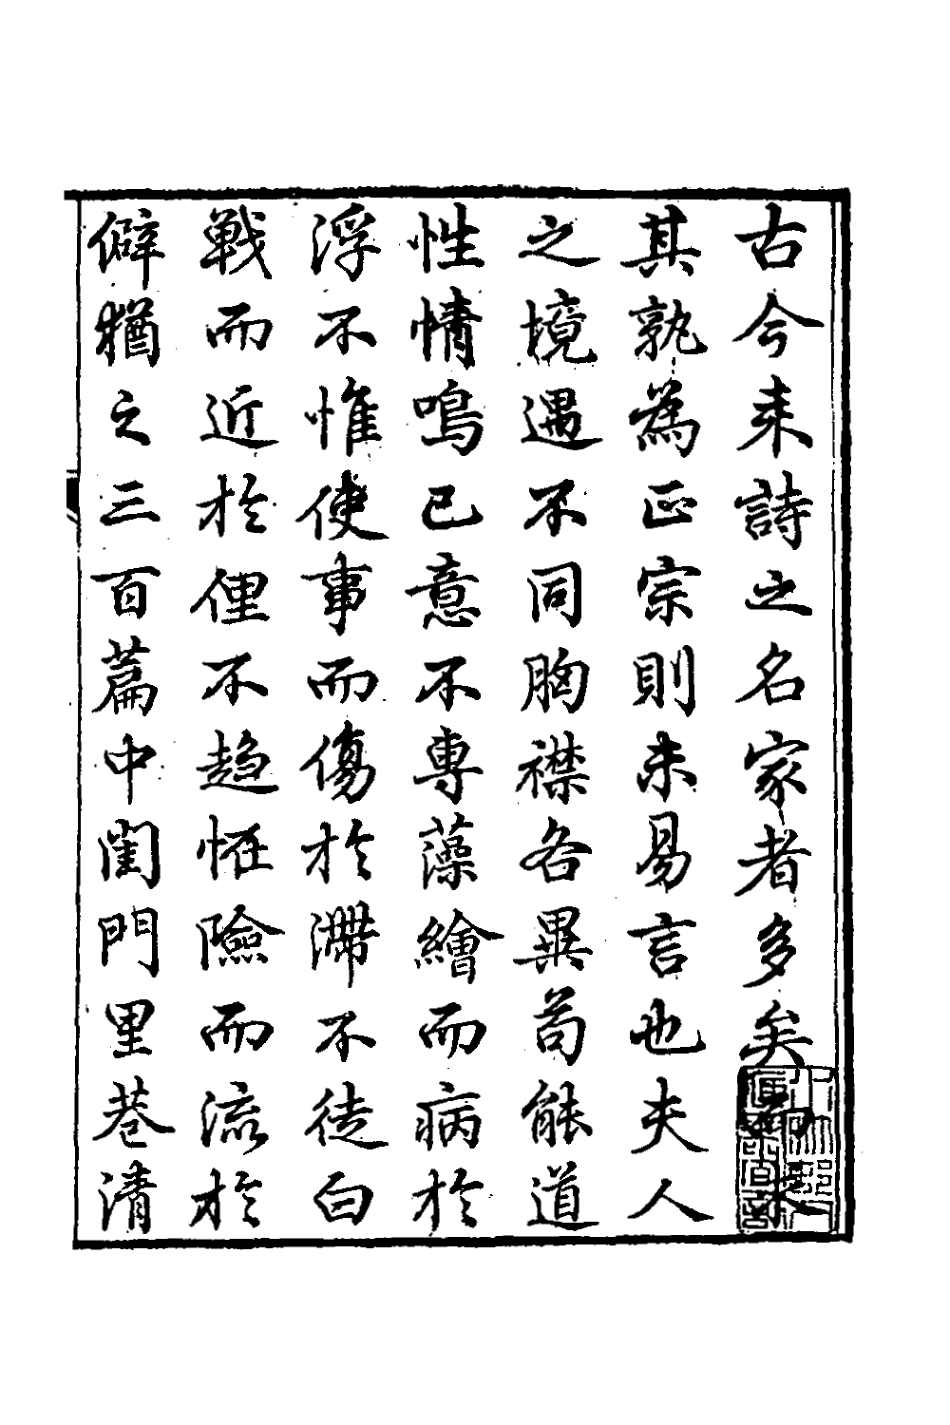 古今来詩之名家者多矣求
其孰為正宗則未易言也夫人
之境遇不同胸襟各異苟能道
性情鳴已意不專藻繪而病於
浮不惟使事而傷於滯不徒白
戰而近於俚不趨恠險而流於
僻猶之三百篇中閨門里巷清